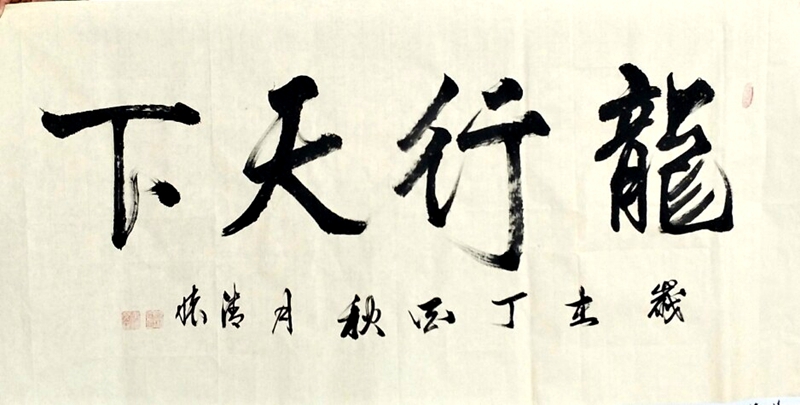 龍行天下
歲在丁酉秋月清怀